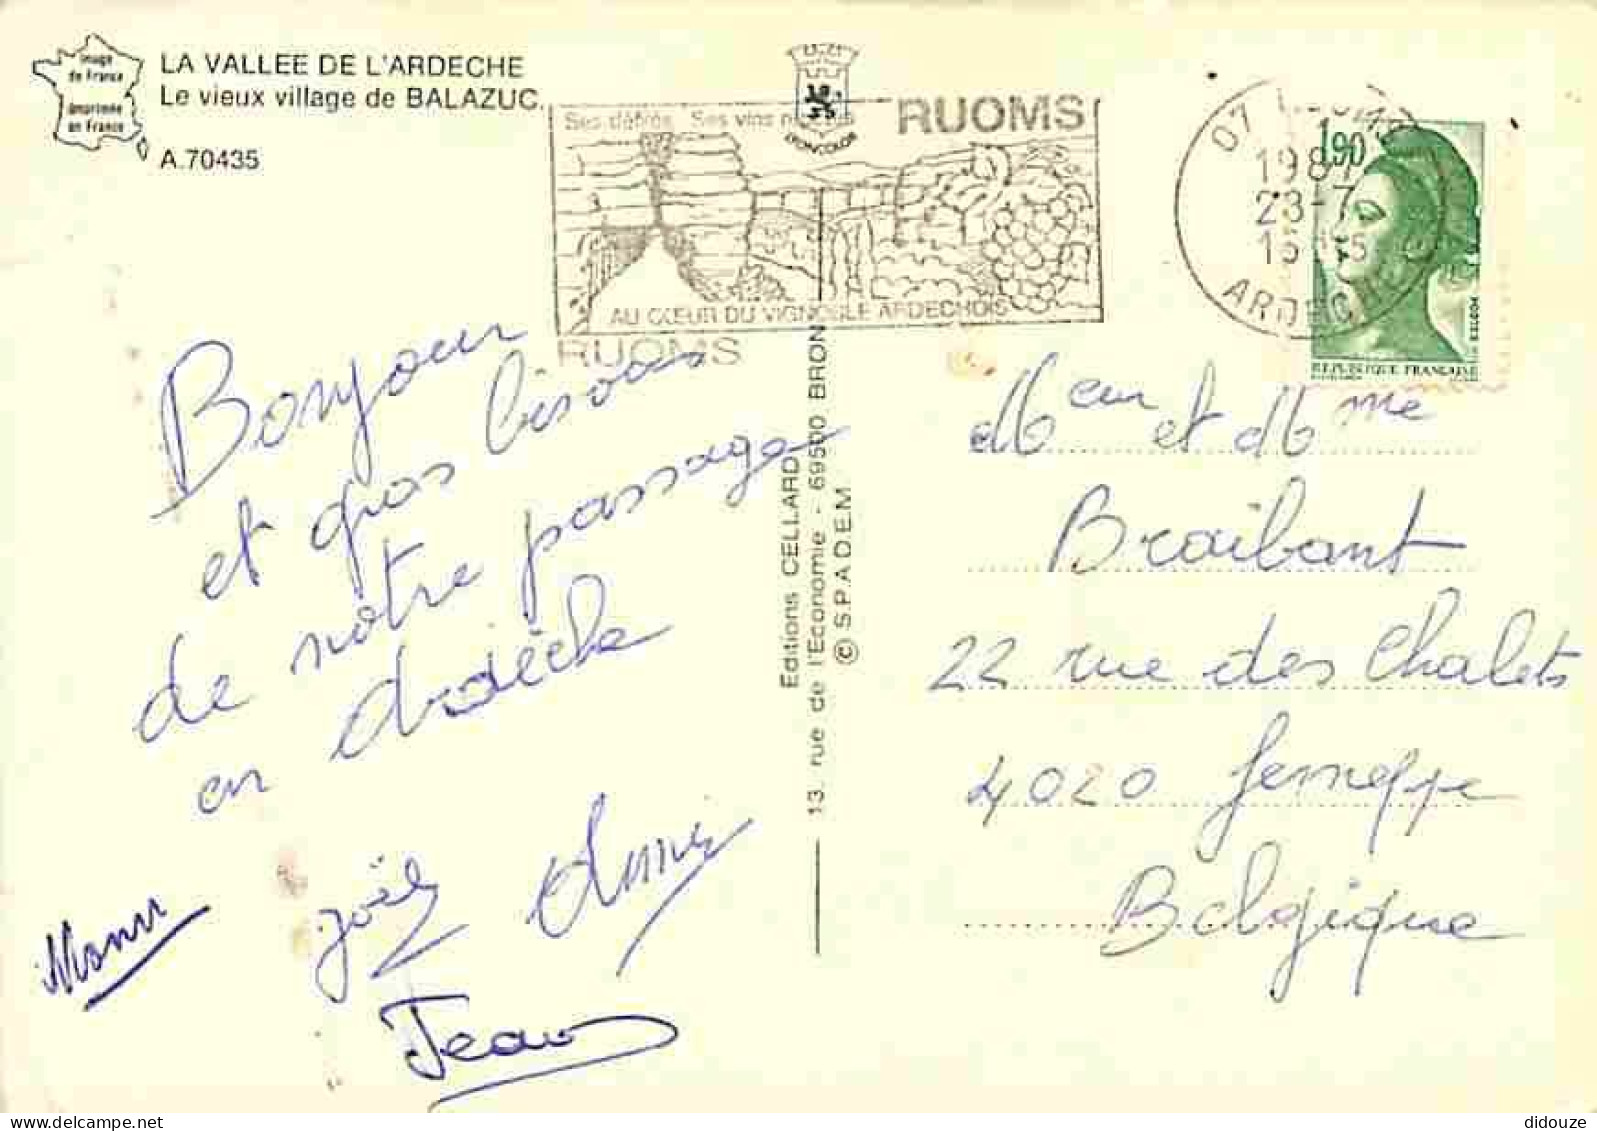 Image
de France
imprimée
en France
LA VALLEE DE L'ARDECHE
Le vieux village de BALAZUC.
A.70435
Ses défilés Ses vins
RUOMS
LYONCOLOR
AU CŒUR DU VIGNOBLE ARDECHOIS
RUOMS
07 RUOMS
1987
23-7
ARDECHE
1,90
REPUBLIQUE FRANÇAISE
Bonjour
et gros bisous
de notre passage
en Ardèche
Manu
Joël
Jean
Editions CELLARD
13, rue de l'Economie - 69500 BRON
© S.P.A.D.E.M
Meur et Mme
Braibant
22 rue des Chalets
4020 Jemeppe
Belgique
www.delcampe.net
didouze